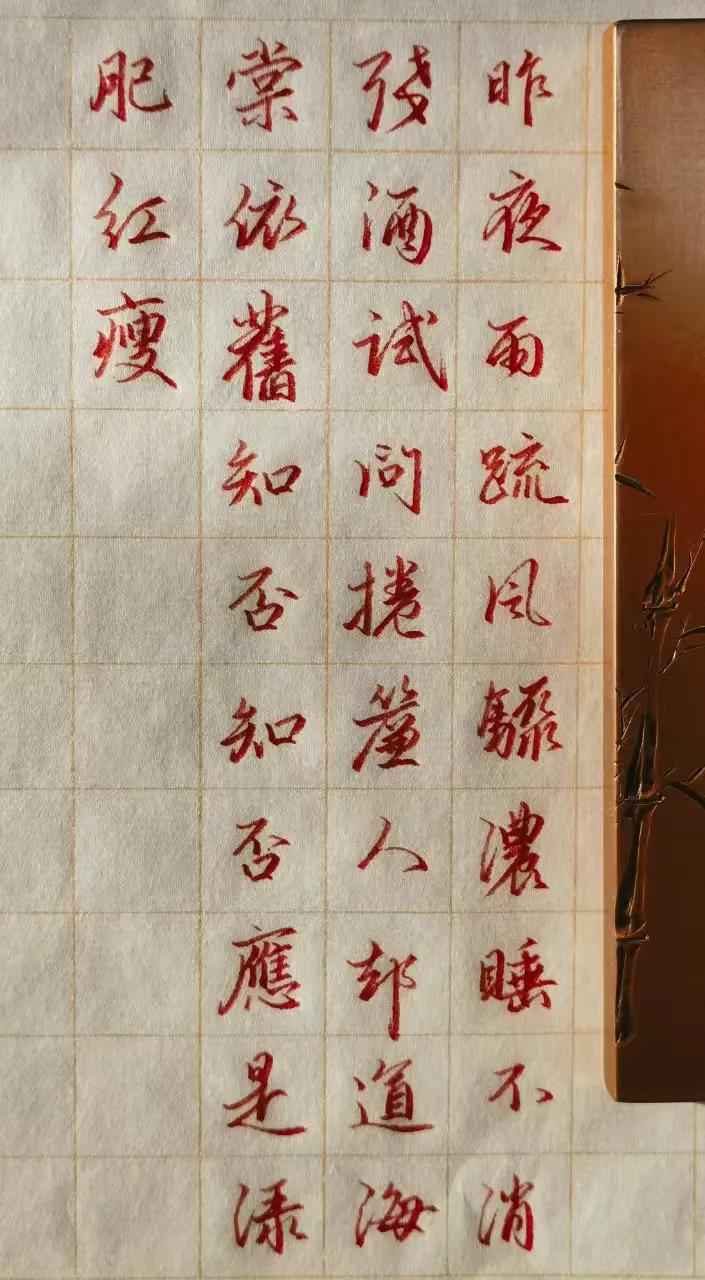 昨夜雨疏风驟濃睡不消
残酒試问捲簾人却道海
棠依舊知否知否應是渌
肥红瘦